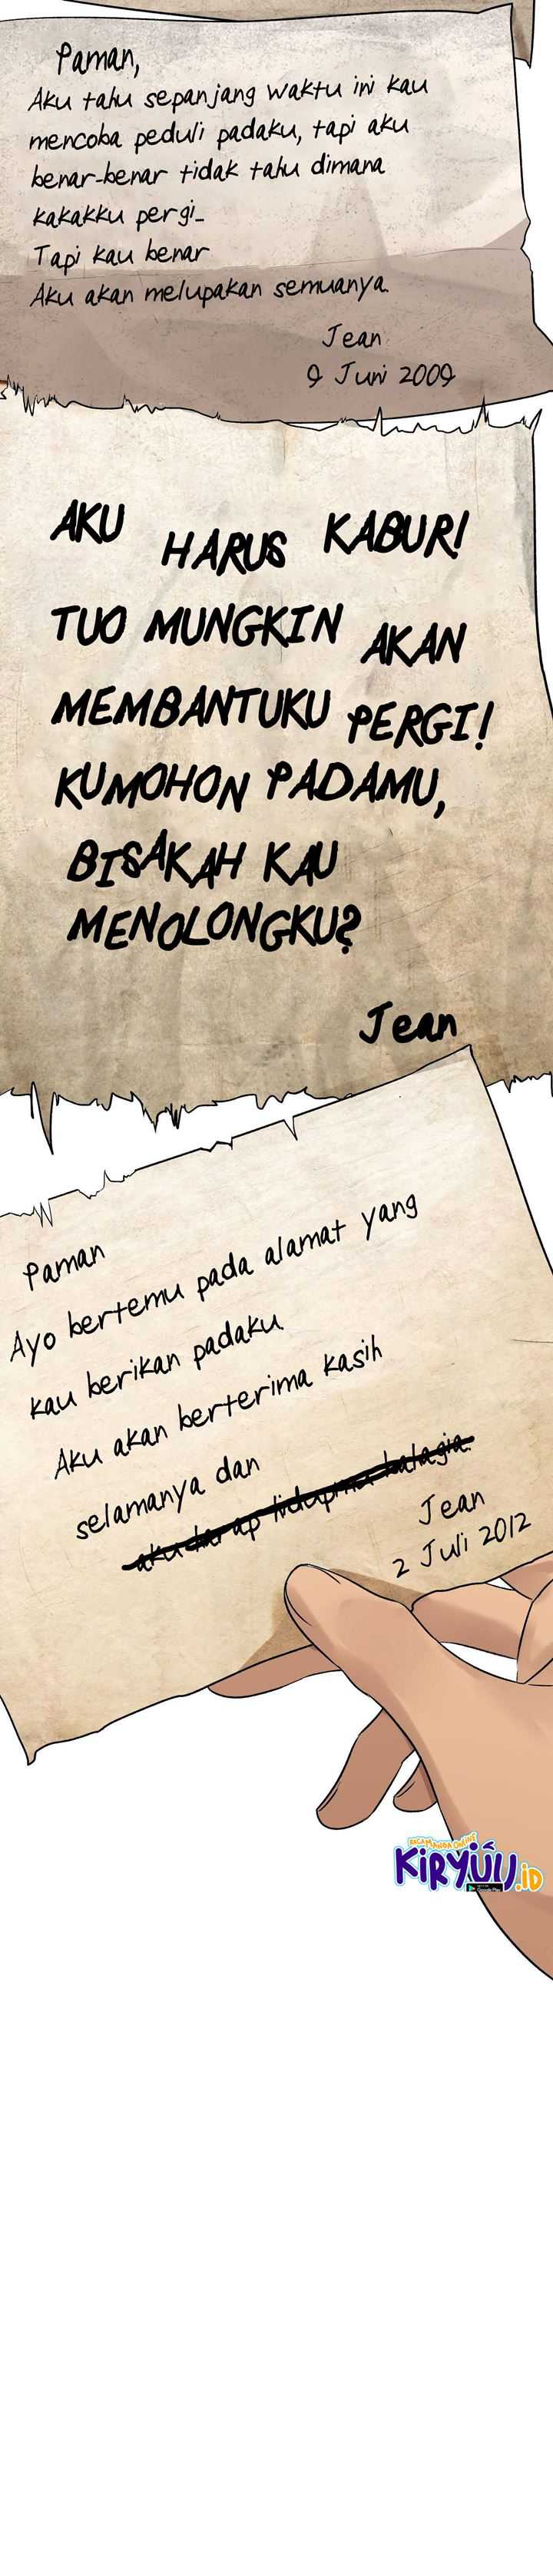 Paman,
Aku tahu sepanjang waktu ini kau
mencoba peduli padaku, tapi aku
benar-benar tidak tahu dimana
kakakku pergi_
Tapi kau benar
Aku akan melupakan semuanya.
Jean
9 Juni 2009
AKU HARUS KABUR!
TUO MUNGKIN AKAN
MEMBANTUKU PERGI!
KUMOHON PADAMU,
BISAKAH KAU
MENOLONGKU?
Jean
Paman
Ayo bertemu pada alamat yang
kau berikan padaku.
Aku akan berterima kasih
selamanya dan
aku harap hidupmu bahagia.
Jean
2 Juli 2012
BACA MANGA ONLINE
KIRYUU.ID